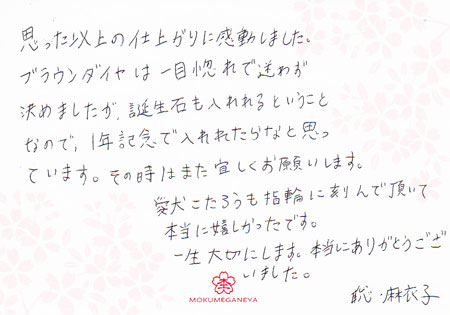 思った以上の仕上がりに感動しました。
ブラウンダイヤは一目惚れで迷わず
決めましたが、誕生石も入れれるということ
なので、1年記念で入れれたらなと思っ
ています。その時はまた宜しくお願いします。
愛犬こたろうも指輪に刻んで頂いて
本当に嬉しかったです。
一生大切にします。本当にありがとうござ
いました。
MOKUMEGANEYA
聡・麻衣子